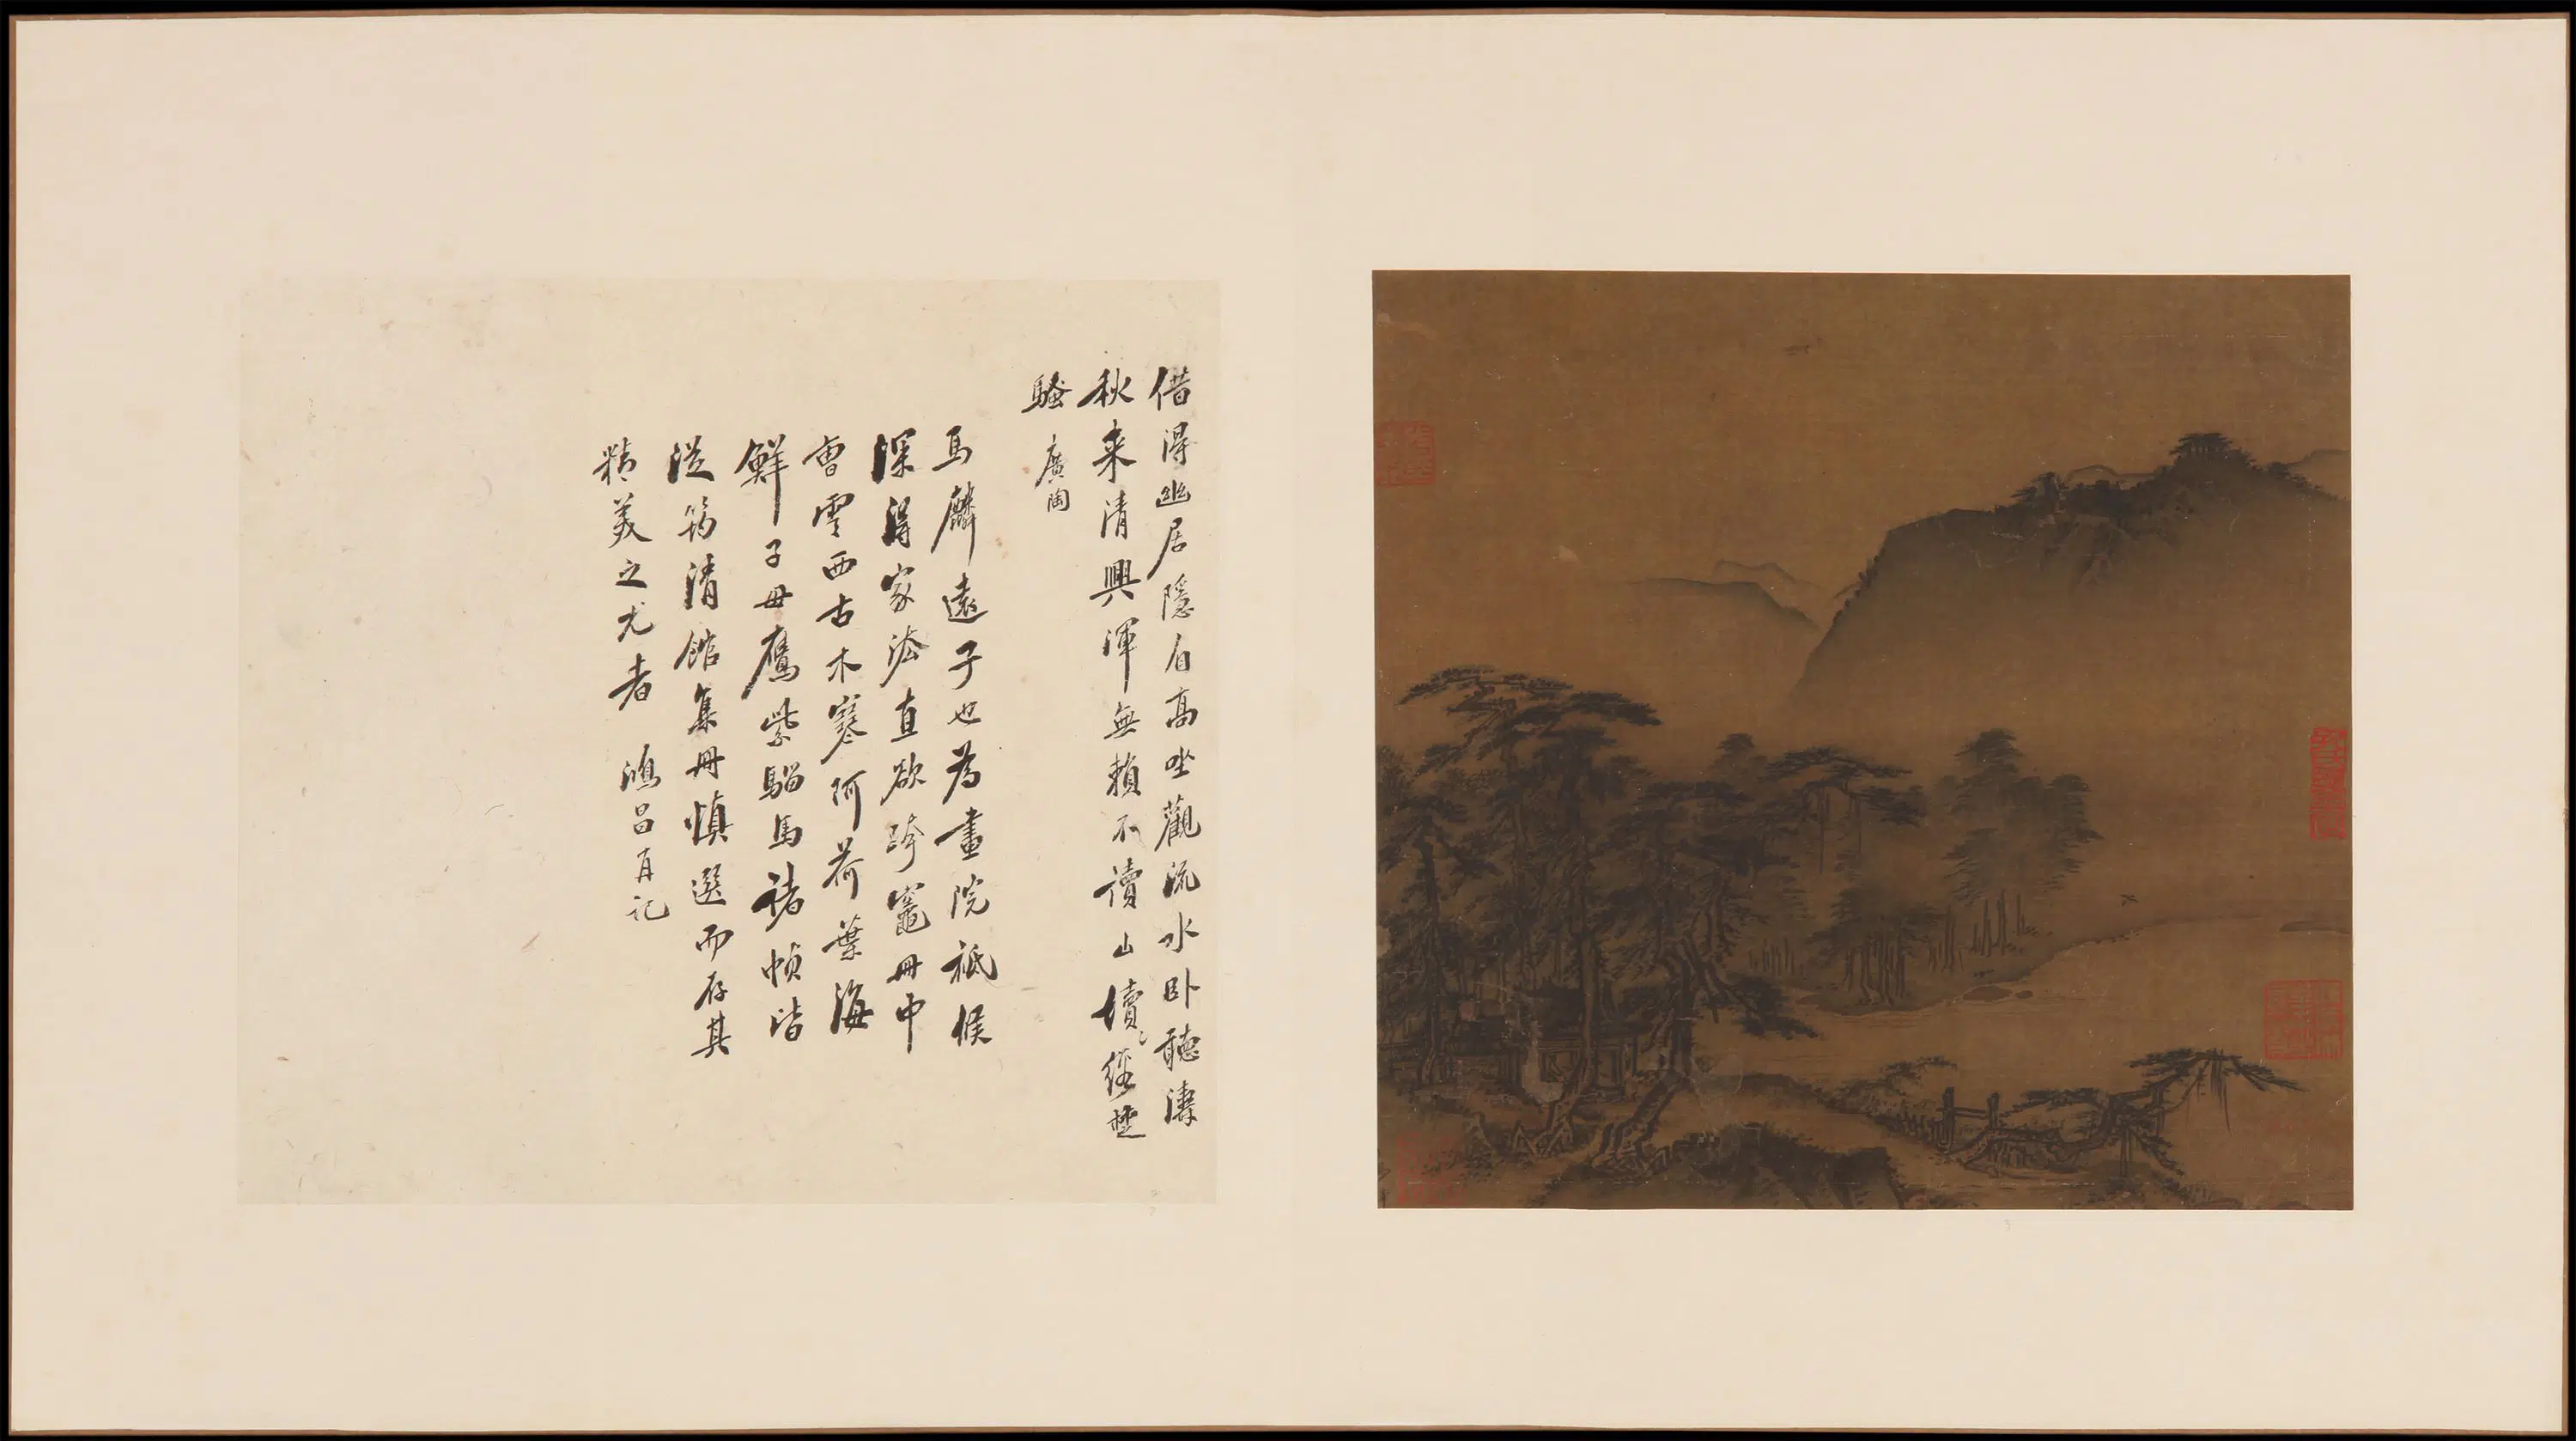 借得幽居隱自高坐觀流水卧聽濤
秋来清興渾無賴不讀山讀
騷 廣陶
馬麟遠子也為畫院祗候
深得家法直欲跨竈冊中
曹雲西古木寒柯荷葉海
鮮子母鷹紫騮馬諸幀皆
從筠清館集冊慎選而存其
精美之尤者 鴻昌再記